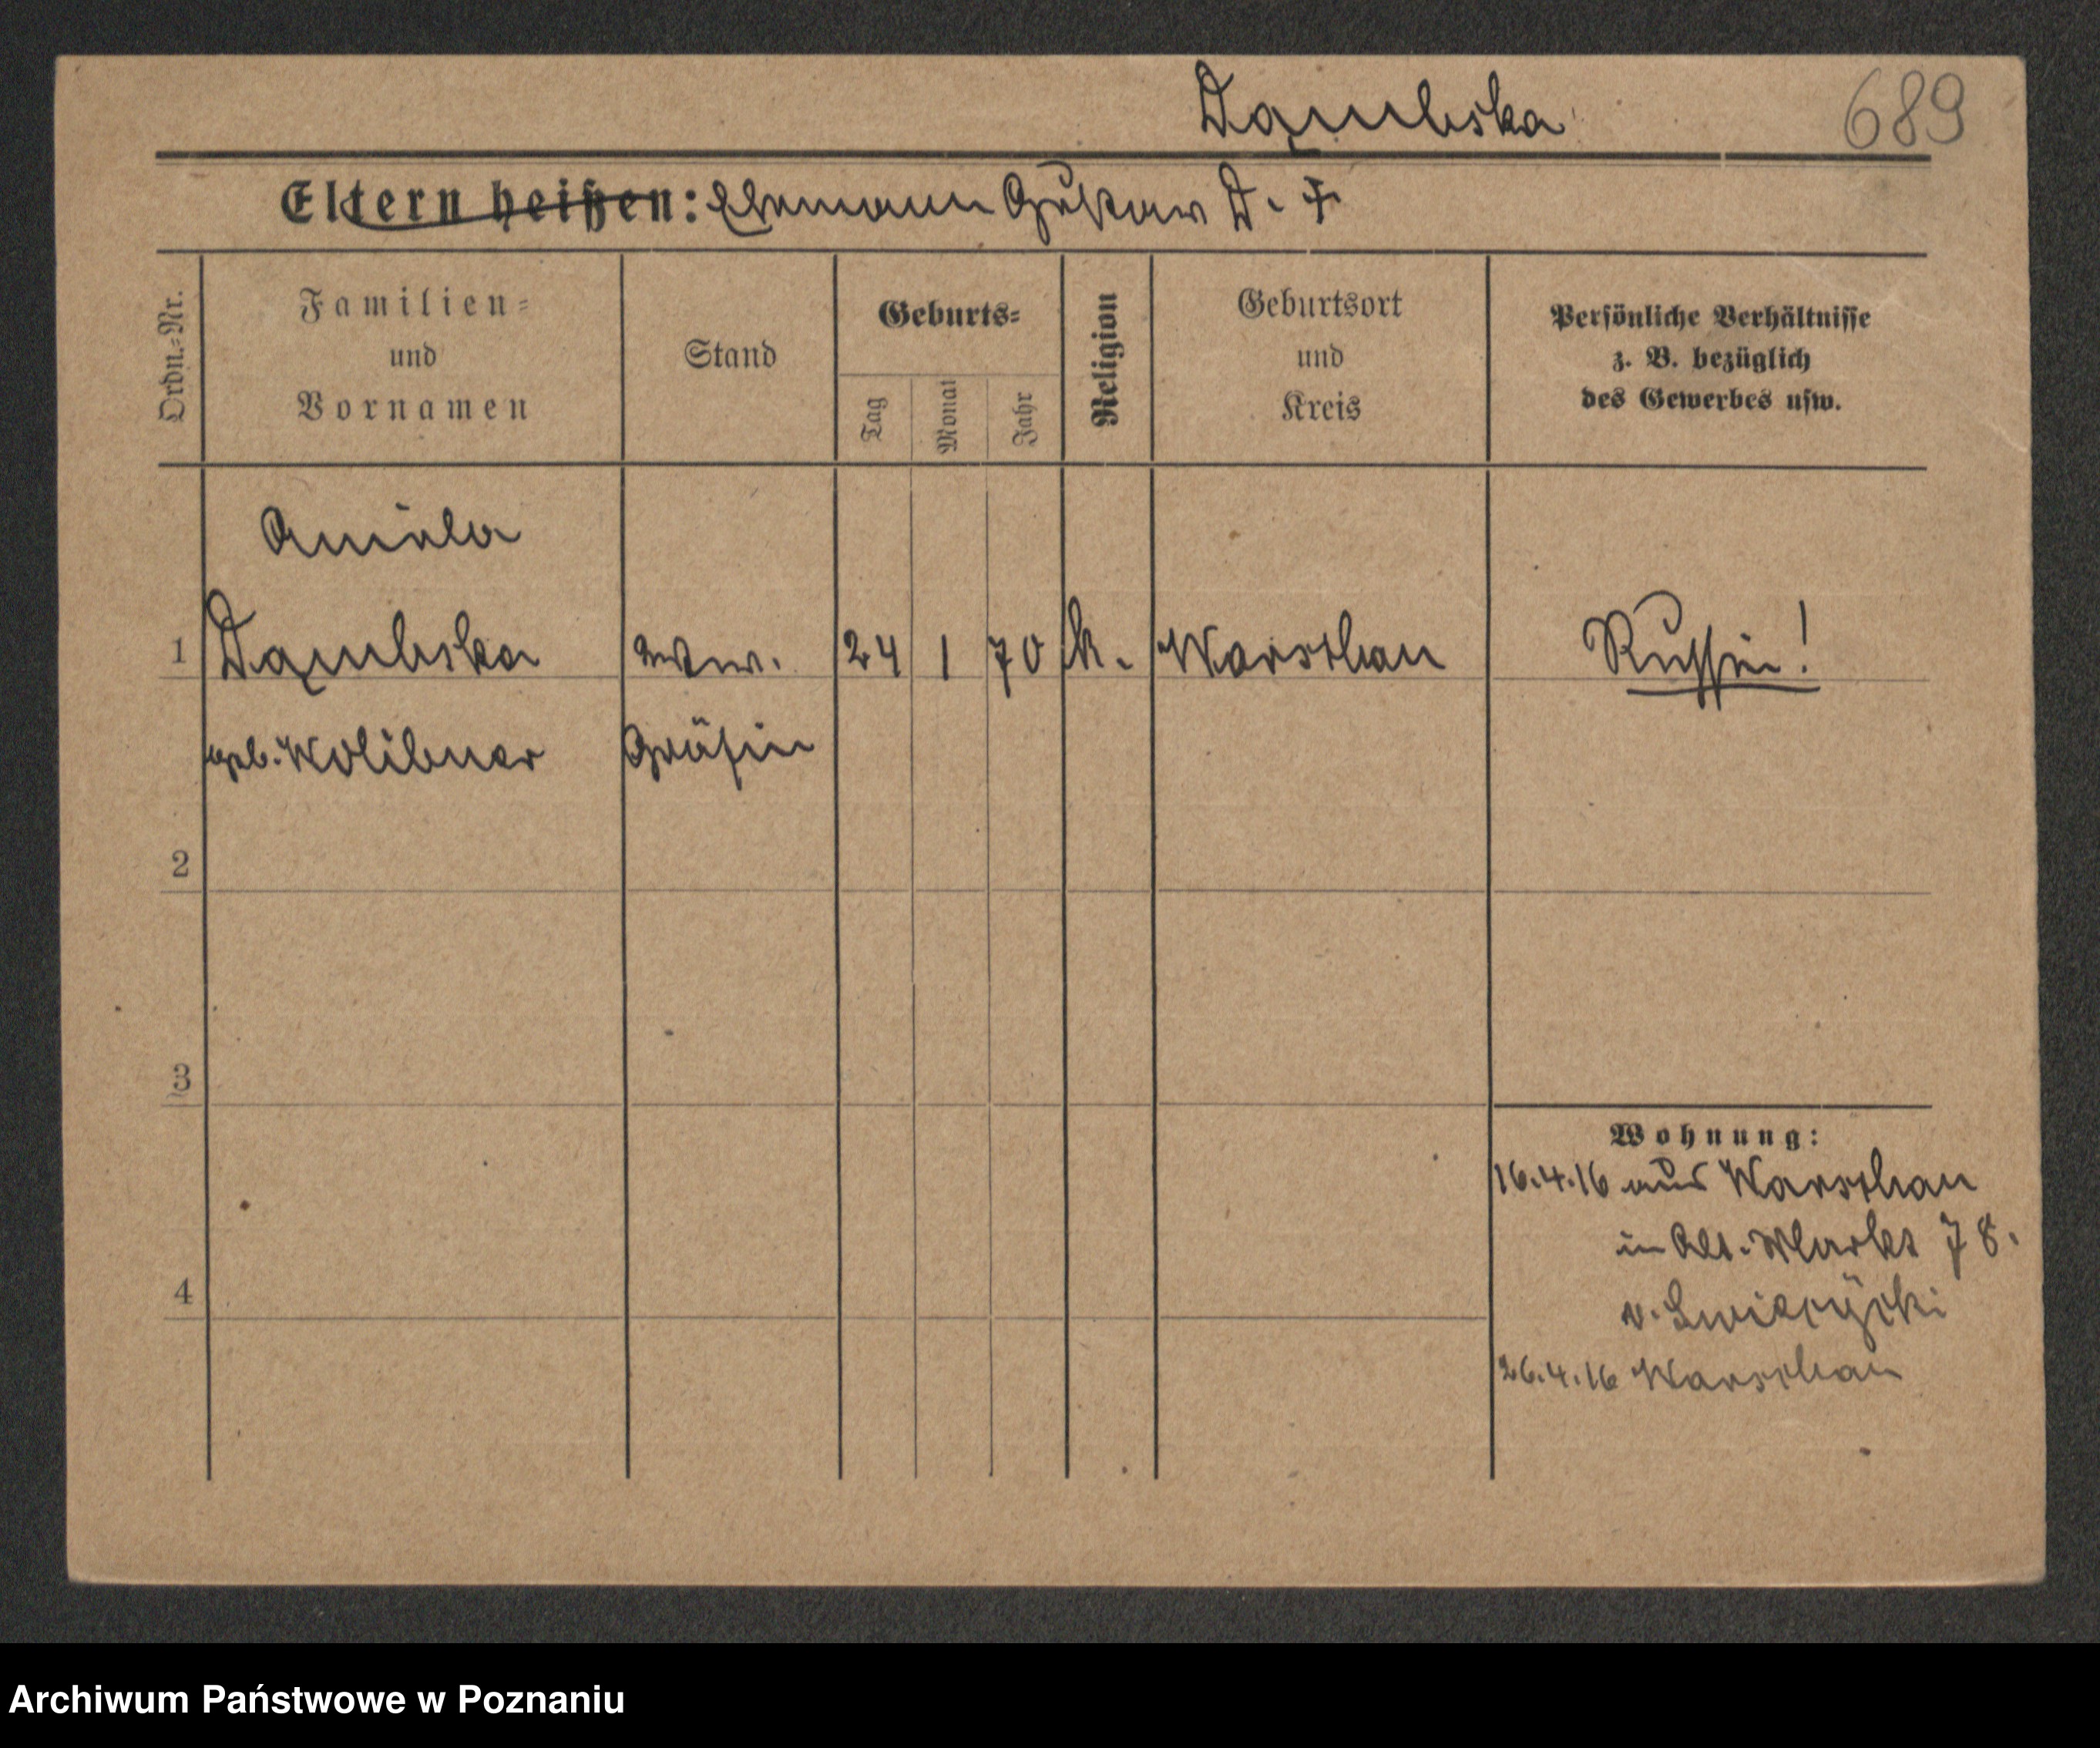 Dąmbska
689
Eltern heißen: Ehemann Gustav D. †
Ordn.-Nr.
Familien-
und
Vornamen
Stand
Geburts-
Tag
Monat
Jahr
Religion
Geburtsort
und
Kreis
Persönliche Verhältnisse
z. B. bezüglich
des Gewerbes usw.
Aniela
1 Dąmbska Wwe. 24 1 70 k. Warschau Russin!
geb. Wolibner Gräfin
2
3
Wohnung:
16.4.16 aus Warschau
in Alt. Markt 78.
4
26.4.16 Warschau
Archiwum Państwowe w Poznaniu